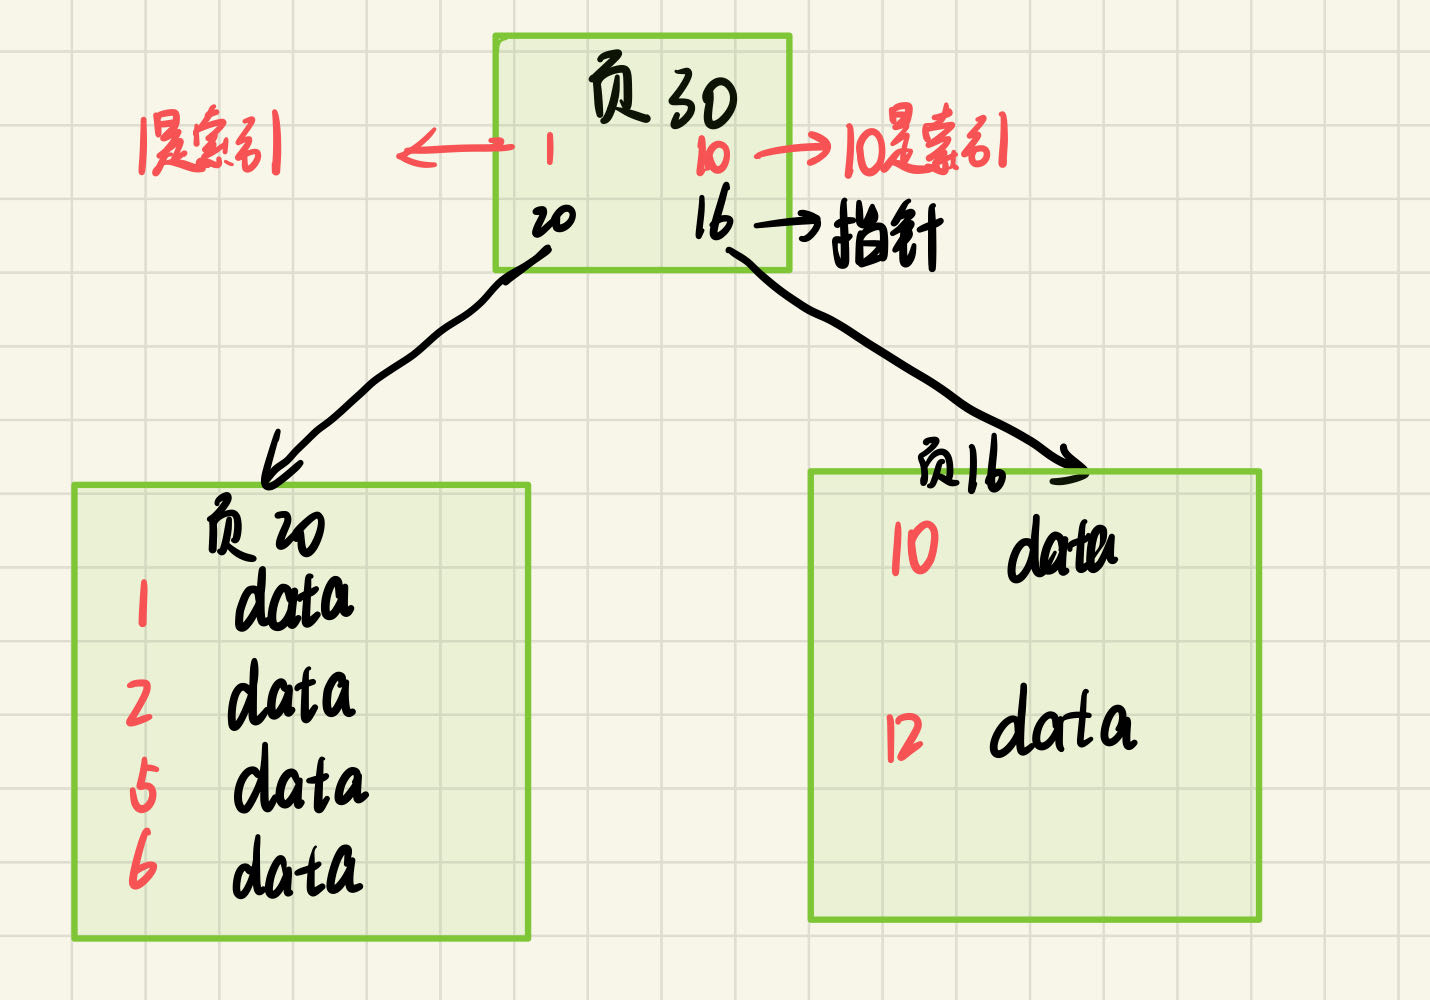 页 30
1是索引 1 10 10是索引
20 16 指针
页 20
1 data
2 data
5 data
6 data
页16
10 data
12 data